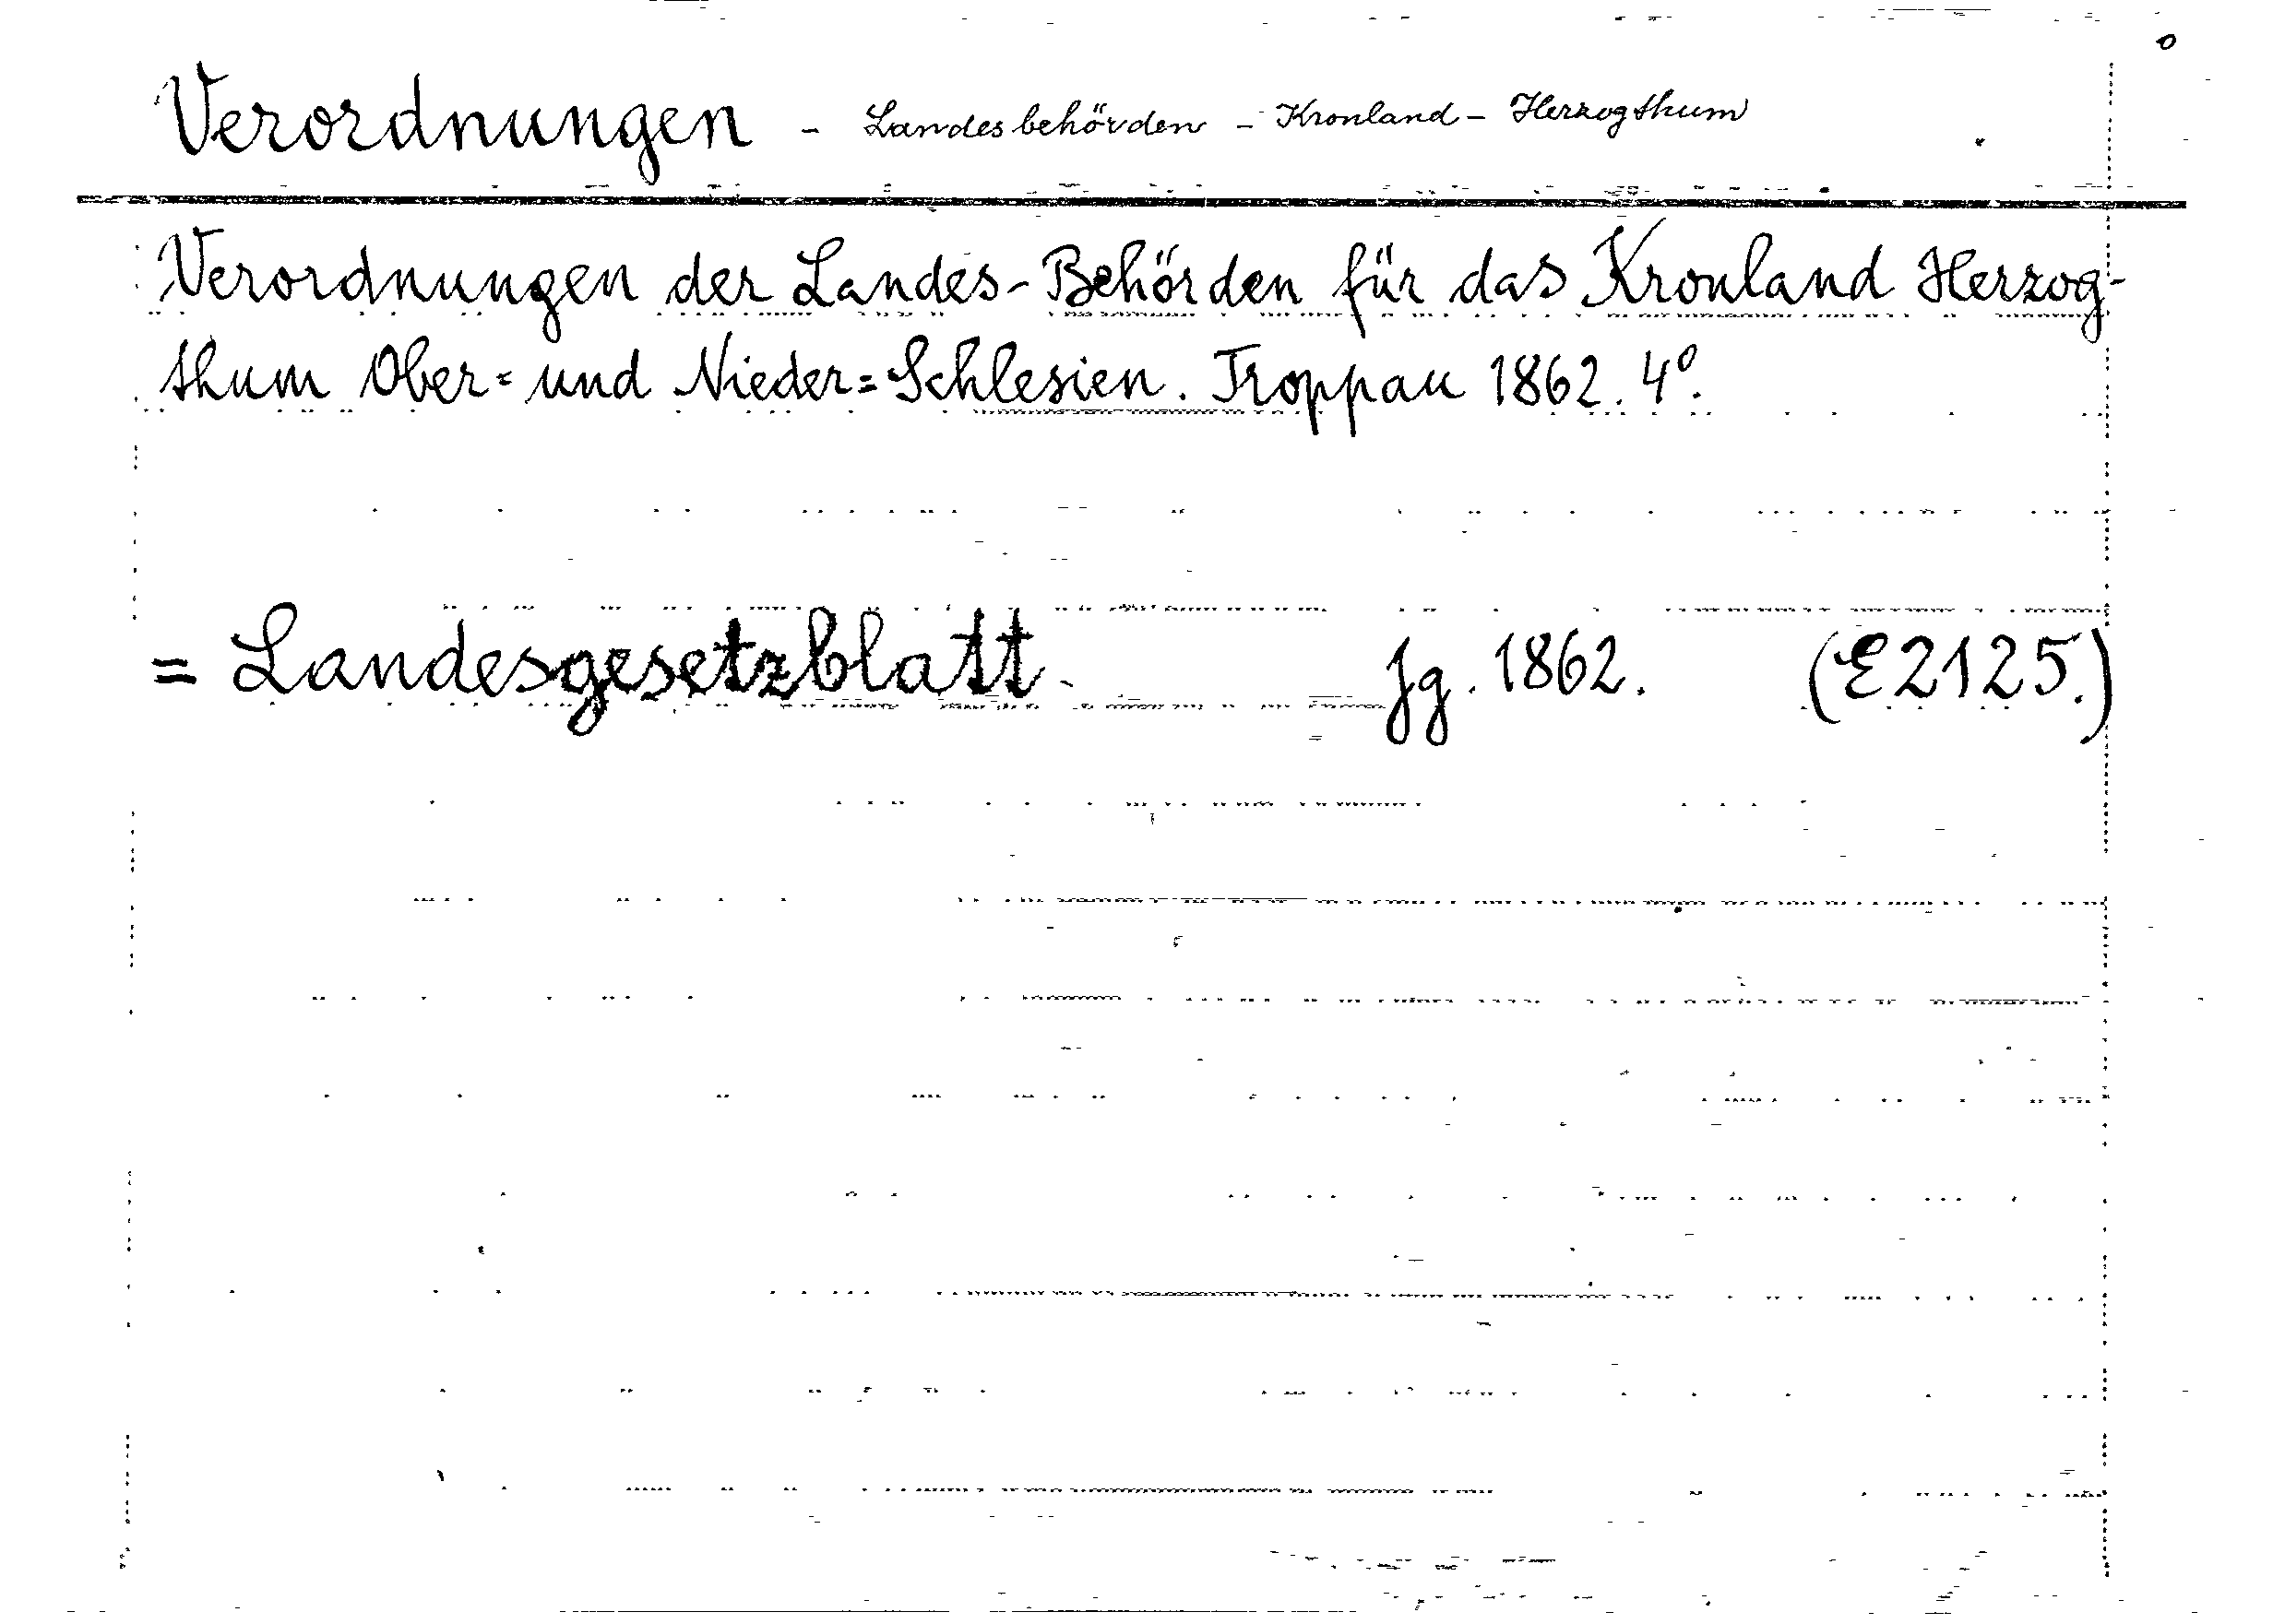 Verordnungen - Landesbehörden - Kronland - Herzogthum
Verordnungen der Landes-Behörden für das Kronland Herzog-
thum Ober= und Nieder=Schlesien. Troppau 1862. 4º.
= Landesgesetzblatt. Jg. 1862. (E2125.)